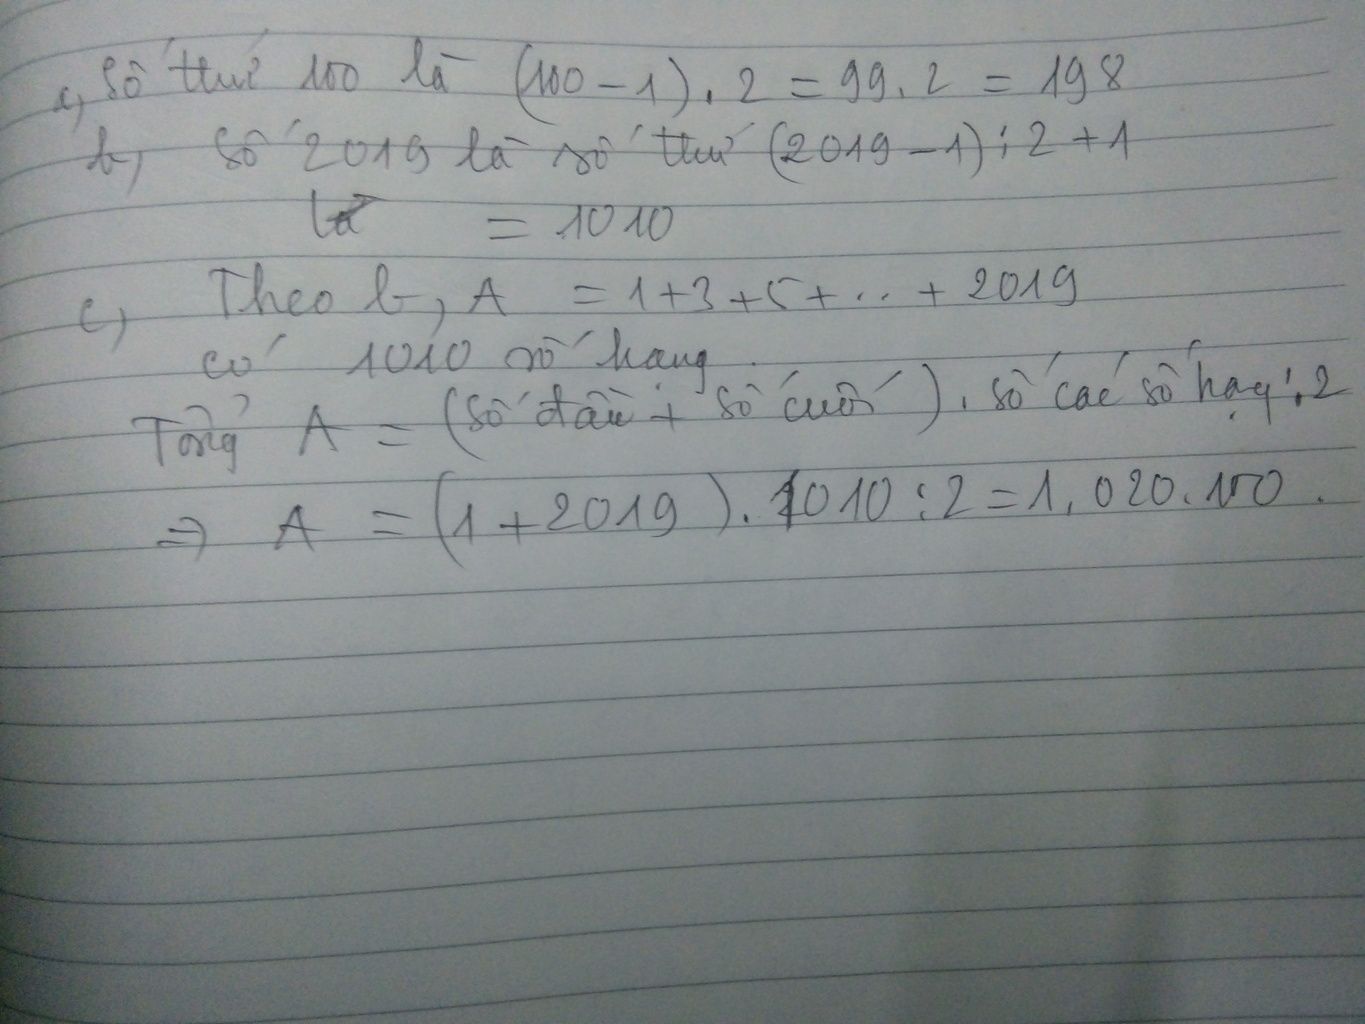 a, Số thứ 100 là (100 - 1) . 2 = 99 . 2 = 198
b, Số 2019 là số thứ (2019 - 1) : 2 + 1
= 1010
c, Theo b, A = 1 + 3 + 5 + ... + 2019
có 1010 số hạng.
Tổng A = (số đầu + số cuối) . số các số hạng : 2
=> A = (1 + 2019) . 1010 : 2 = 1.020.100.